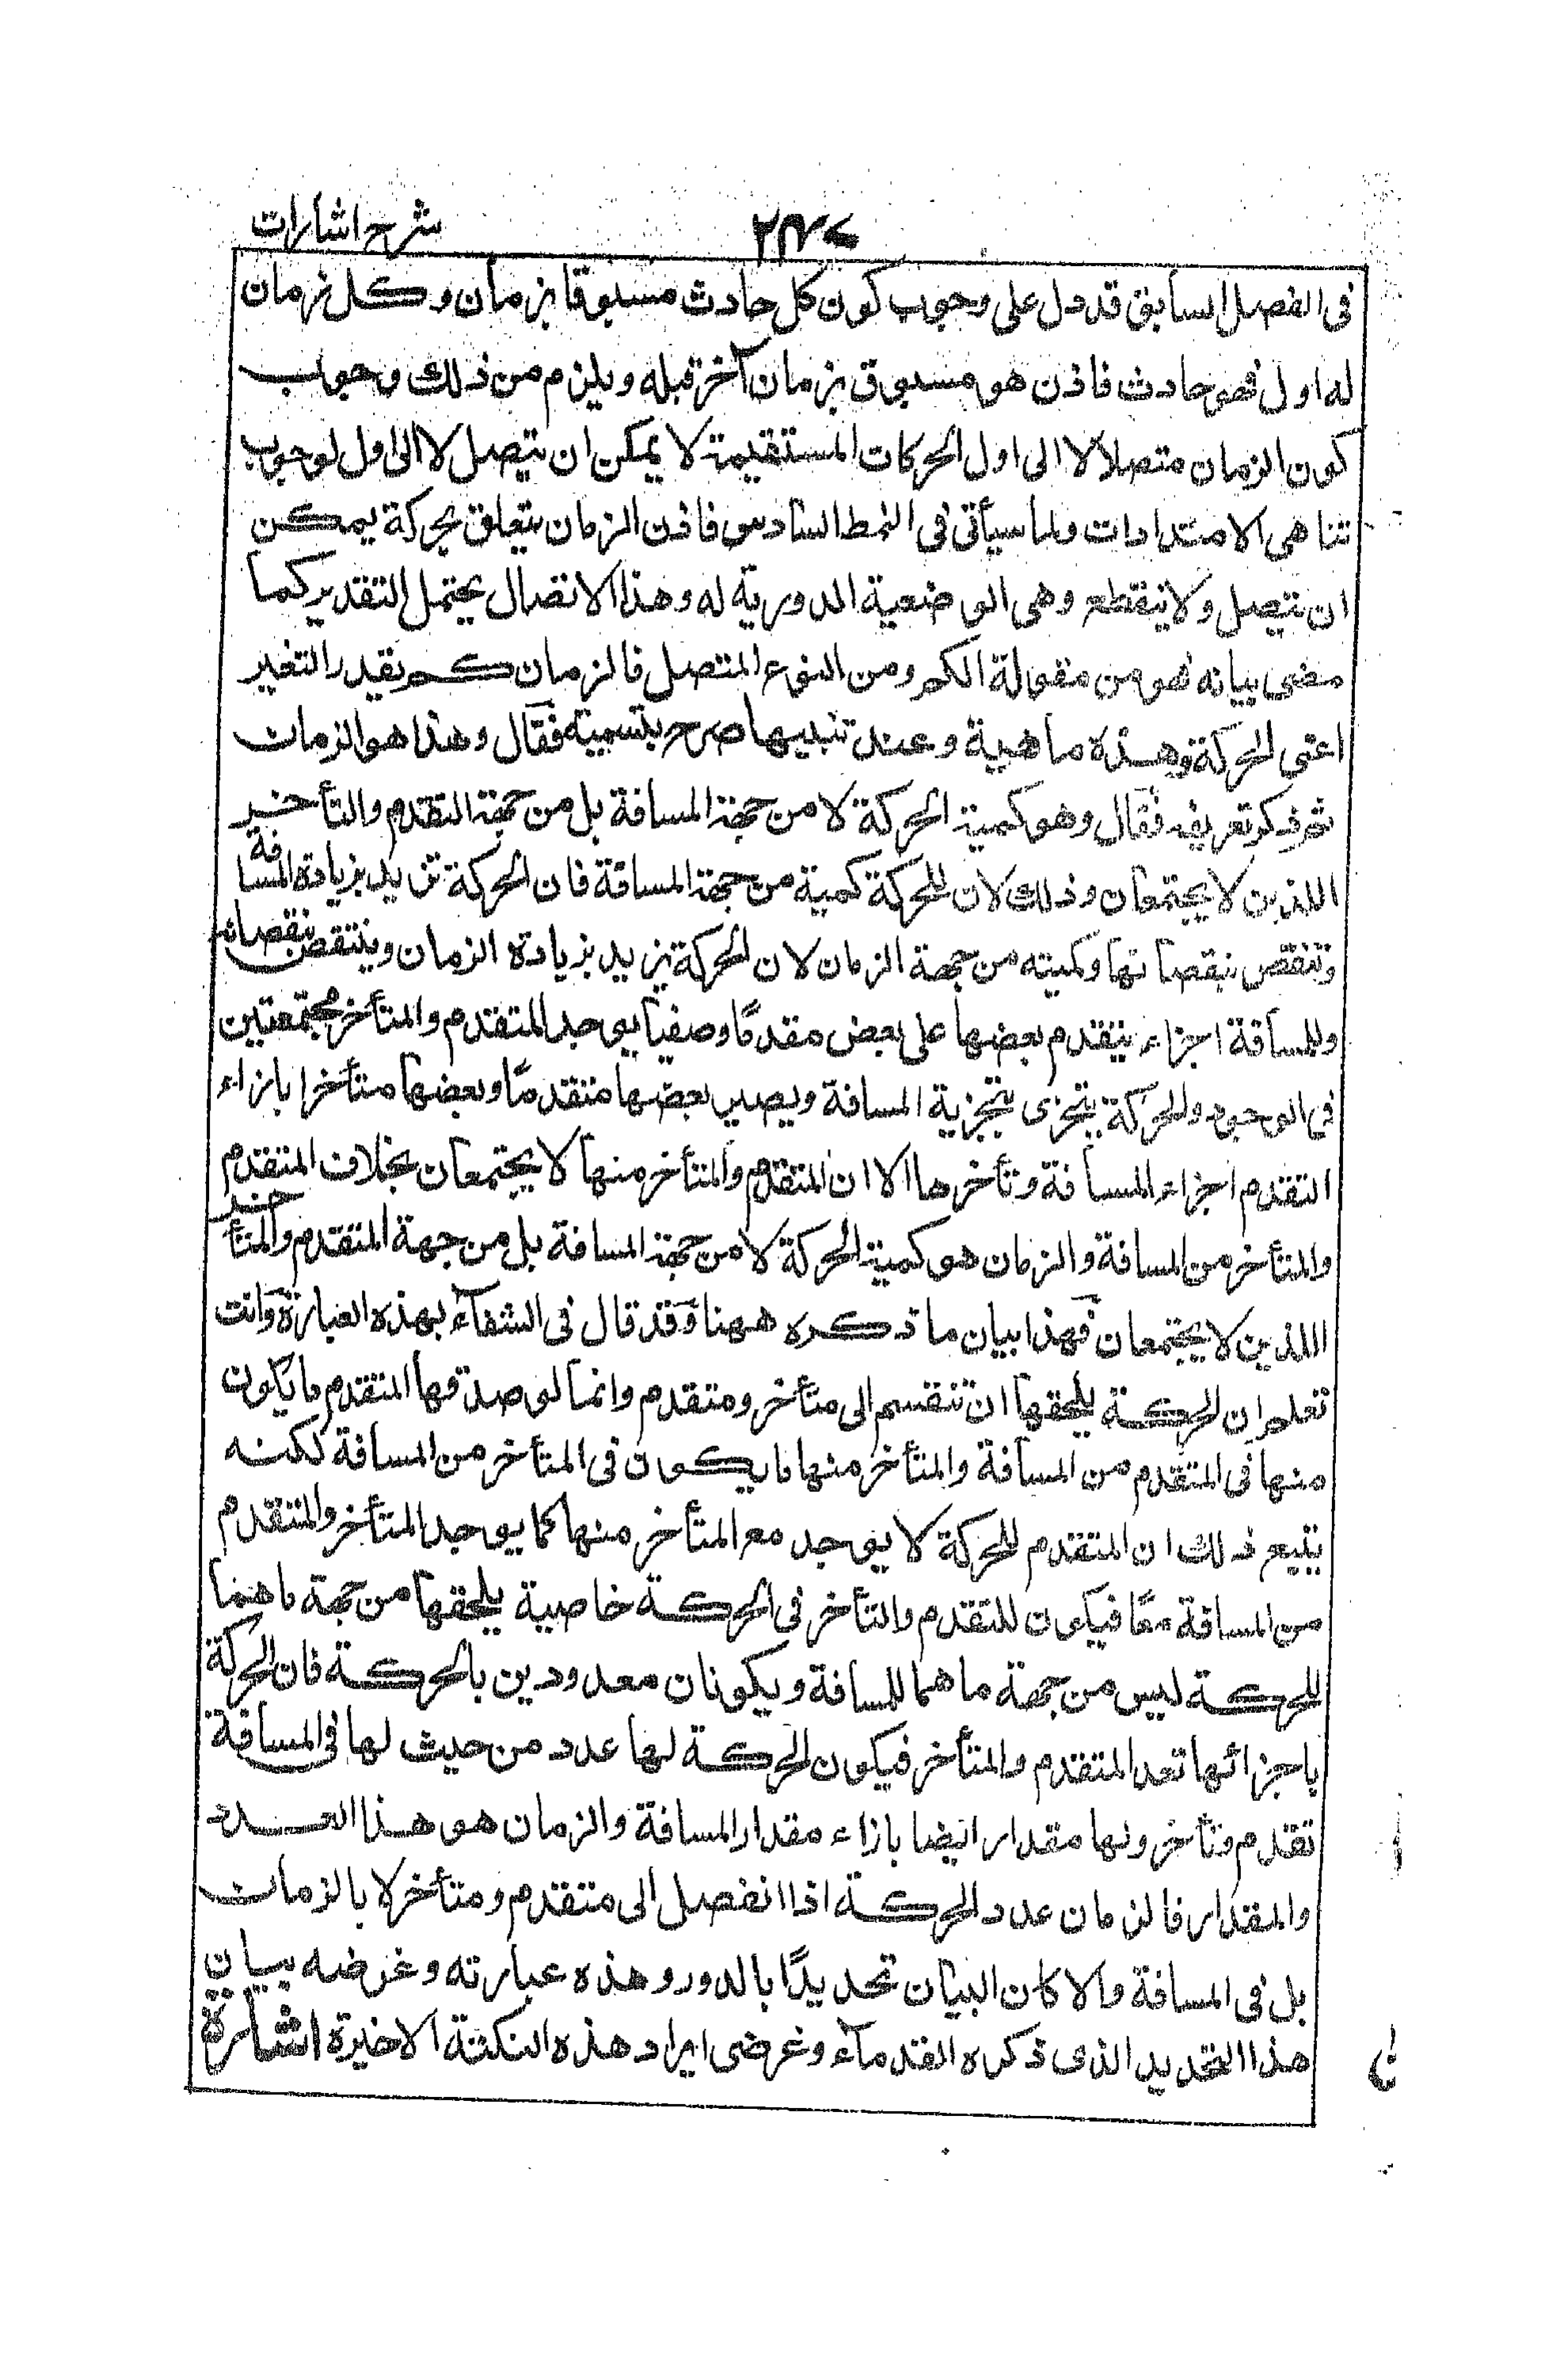 شرح اشارات
في الفصل السابق قد دل على وجوب كون كل حادث مسبوقا بزمان وكل زمان
له اول فهو حادث فاذن هو مسبوق بزمان آخر قبله ويلزم من ذلك وجوب
كون الزمان متصلا لا الى اول الحركات المستقيمة لا يمكن ان يتصل لا الى اول لوجوب
تناهى الامتدادات ولما سيأتى فى النمط السادس فاذن الزمان يتعلق بحركة يمكن
ان يتصل ولا ينقطع وهى الوضعية الدورية له وهذا الاتصال يحتمل التقدير كما
مضى بيانه فهو من مقولة الكم ومن النوع المتصل فالزمان كم يقدر التغير
اعنى الحركة وهذه ماهية وعند تنبيها صرح بتسميته فقال وهذا هو الزمان
ثم ذكر تعريفه فقال وهو كمية الحركة لا من جهة المسافة بل من جهة التقدم والتأخر
اللذين لا يجتمعان وذلك لان للحركة كمية من جهة المسافة فان الحركة تزيد بزيادة المسافة
وتنقص بنقصانها وكميته من جهة الزمان لان الحركة يزيد بزيادة الزمان وينتقص بنقصانه
وللمسافة اجزاء يتقدم بعضها على بعض مقدمًا وصفيا يوجد المتقدم والمتأخر مجتمعتين
فى الوجود والحركة يتجزى بتجزية المسافة ويصير بعضها متقدمًا وبعضها متأخرا بازاء
التقدم اجزاء المسافة وتأخرها الا ان المتقدم والمتأخر منها لا يجتمعان بخلاف المتقدم
والمتأخر من المسافة والزمان هو كمية الحركة لا من جهة المسافة بل من جهة المتقدم والمتأخر
اللذين لا يجتمعان فهذا بيان ما ذكره ههنا وقد قال فى الشفآء بهذه العبارة وانت
تعلم ان الحركة يلحقها ان تنقسم الى متأخر ومتقدم وانما لو صدقها المتقدم ما يكون
منها فى المتقدم من المسافة والمتأخر منها ما يكون فى المتأخر من المسافة لكنه
يتبع ذلك ان المتقدم للحركة لا يوجد مع المتأخر منها كما يوجد المتأخر والمتقدم
من المسافة معًا فيكون للتقدم والتأخر فى الحركة خاصية يلحقها من جهة ما هما
للحركة ليس من جهة ما هما للمسافة ويكونان معدودين بالحركة فان الحركة
باجزائها تعد المتقدم والمتأخر فيكون الحركة لها عدد من حيث لها فى المسافة
تقدم وتأخر ولها مقدار ايضا بازاء مقدار المسافة والزمان هو هذا العدد
والمقدار فالزمان عدد الحركة اذا انفصل الى متقدم ومتأخر لا بالزمان
بل فى المسافة والا كان البيان تحديدًا بالدور وهذه عبارته وغرضه بيان
هذا التحديد الذى ذكره القدمآء وغرضى ايراد هذه النكتة الاخيرة اشارة